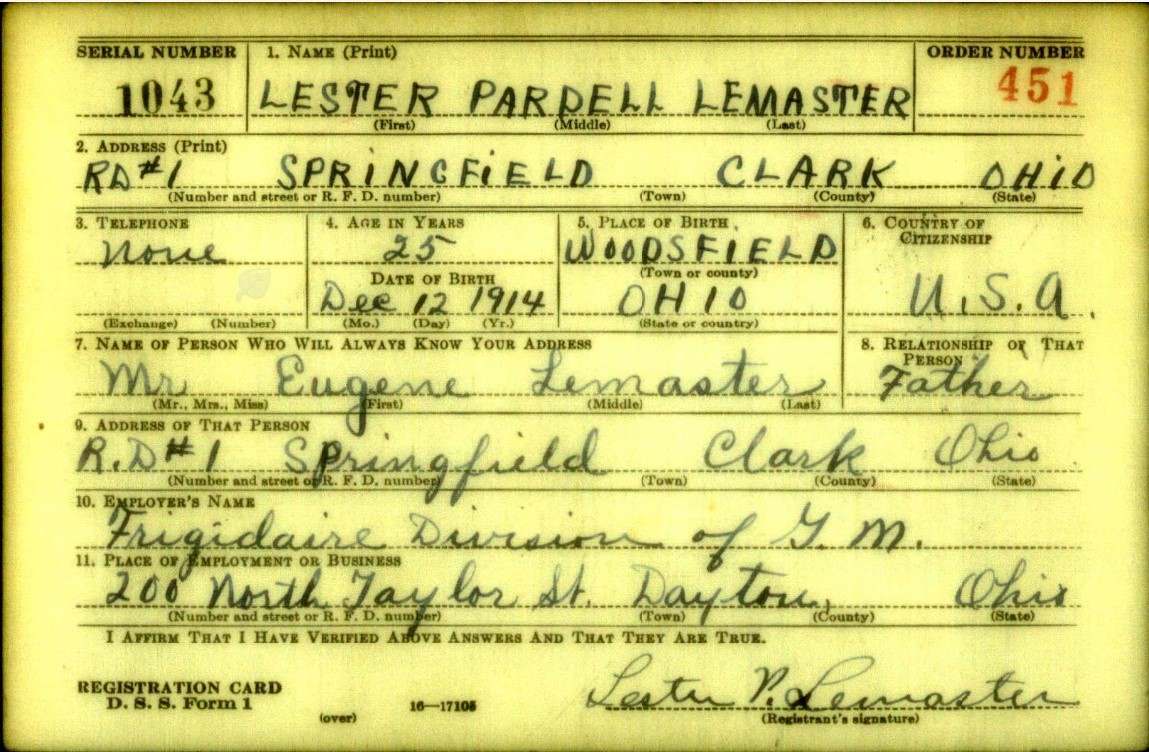 SERIAL NUMBER 1. NAME (Print) ORDER NUMBER
1043 LESTER PARDELL LEMASTER 451
(First) (Middle) (Last)
2. ADDRESS (Print)
RD#1 SPRINGFIELD CLARK OHIO
(Number and street or R. F. D. number) (Town) (County) (State)
3. TELEPHONE 4. AGE IN YEARS 5. PLACE OF BIRTH 6. COUNTRY OF
CITIZENSHIP
None 25 WOODSFIELD
DATE OF BIRTH (Town or county)
Dec 12 1914 OHIO U.S.A.
(Exchange) (Number) (Mo.) (Day) (Yr.) (State or country)
7. NAME OF PERSON WHO WILL ALWAYS KNOW YOUR ADDRESS 8. RELATIONSHIP OF THAT
PERSON
Mr Eugene Lemaster Father
(Mr., Mrs., Miss) (First) (Middle) (Last)
9. ADDRESS OF THAT PERSON
R.D#1 Springfield Clark Ohio
(Number and street or R. F. D. number) (Town) (County) (State)
10. EMPLOYER'S NAME
Frigidaire Division of G.M.
11. PLACE OF EMPLOYMENT OR BUSINESS
200 North Taylor St. Dayton, Ohio
(Number and street or R. F. D. number) (Town) (County) (State)
I AFFIRM THAT I HAVE VERIFIED ABOVE ANSWERS AND THAT THEY ARE TRUE.
REGISTRATION CARD
D. S. S. Form 1 Lester P. Lemaster
(over) 16—17105 (Registrant's signature)